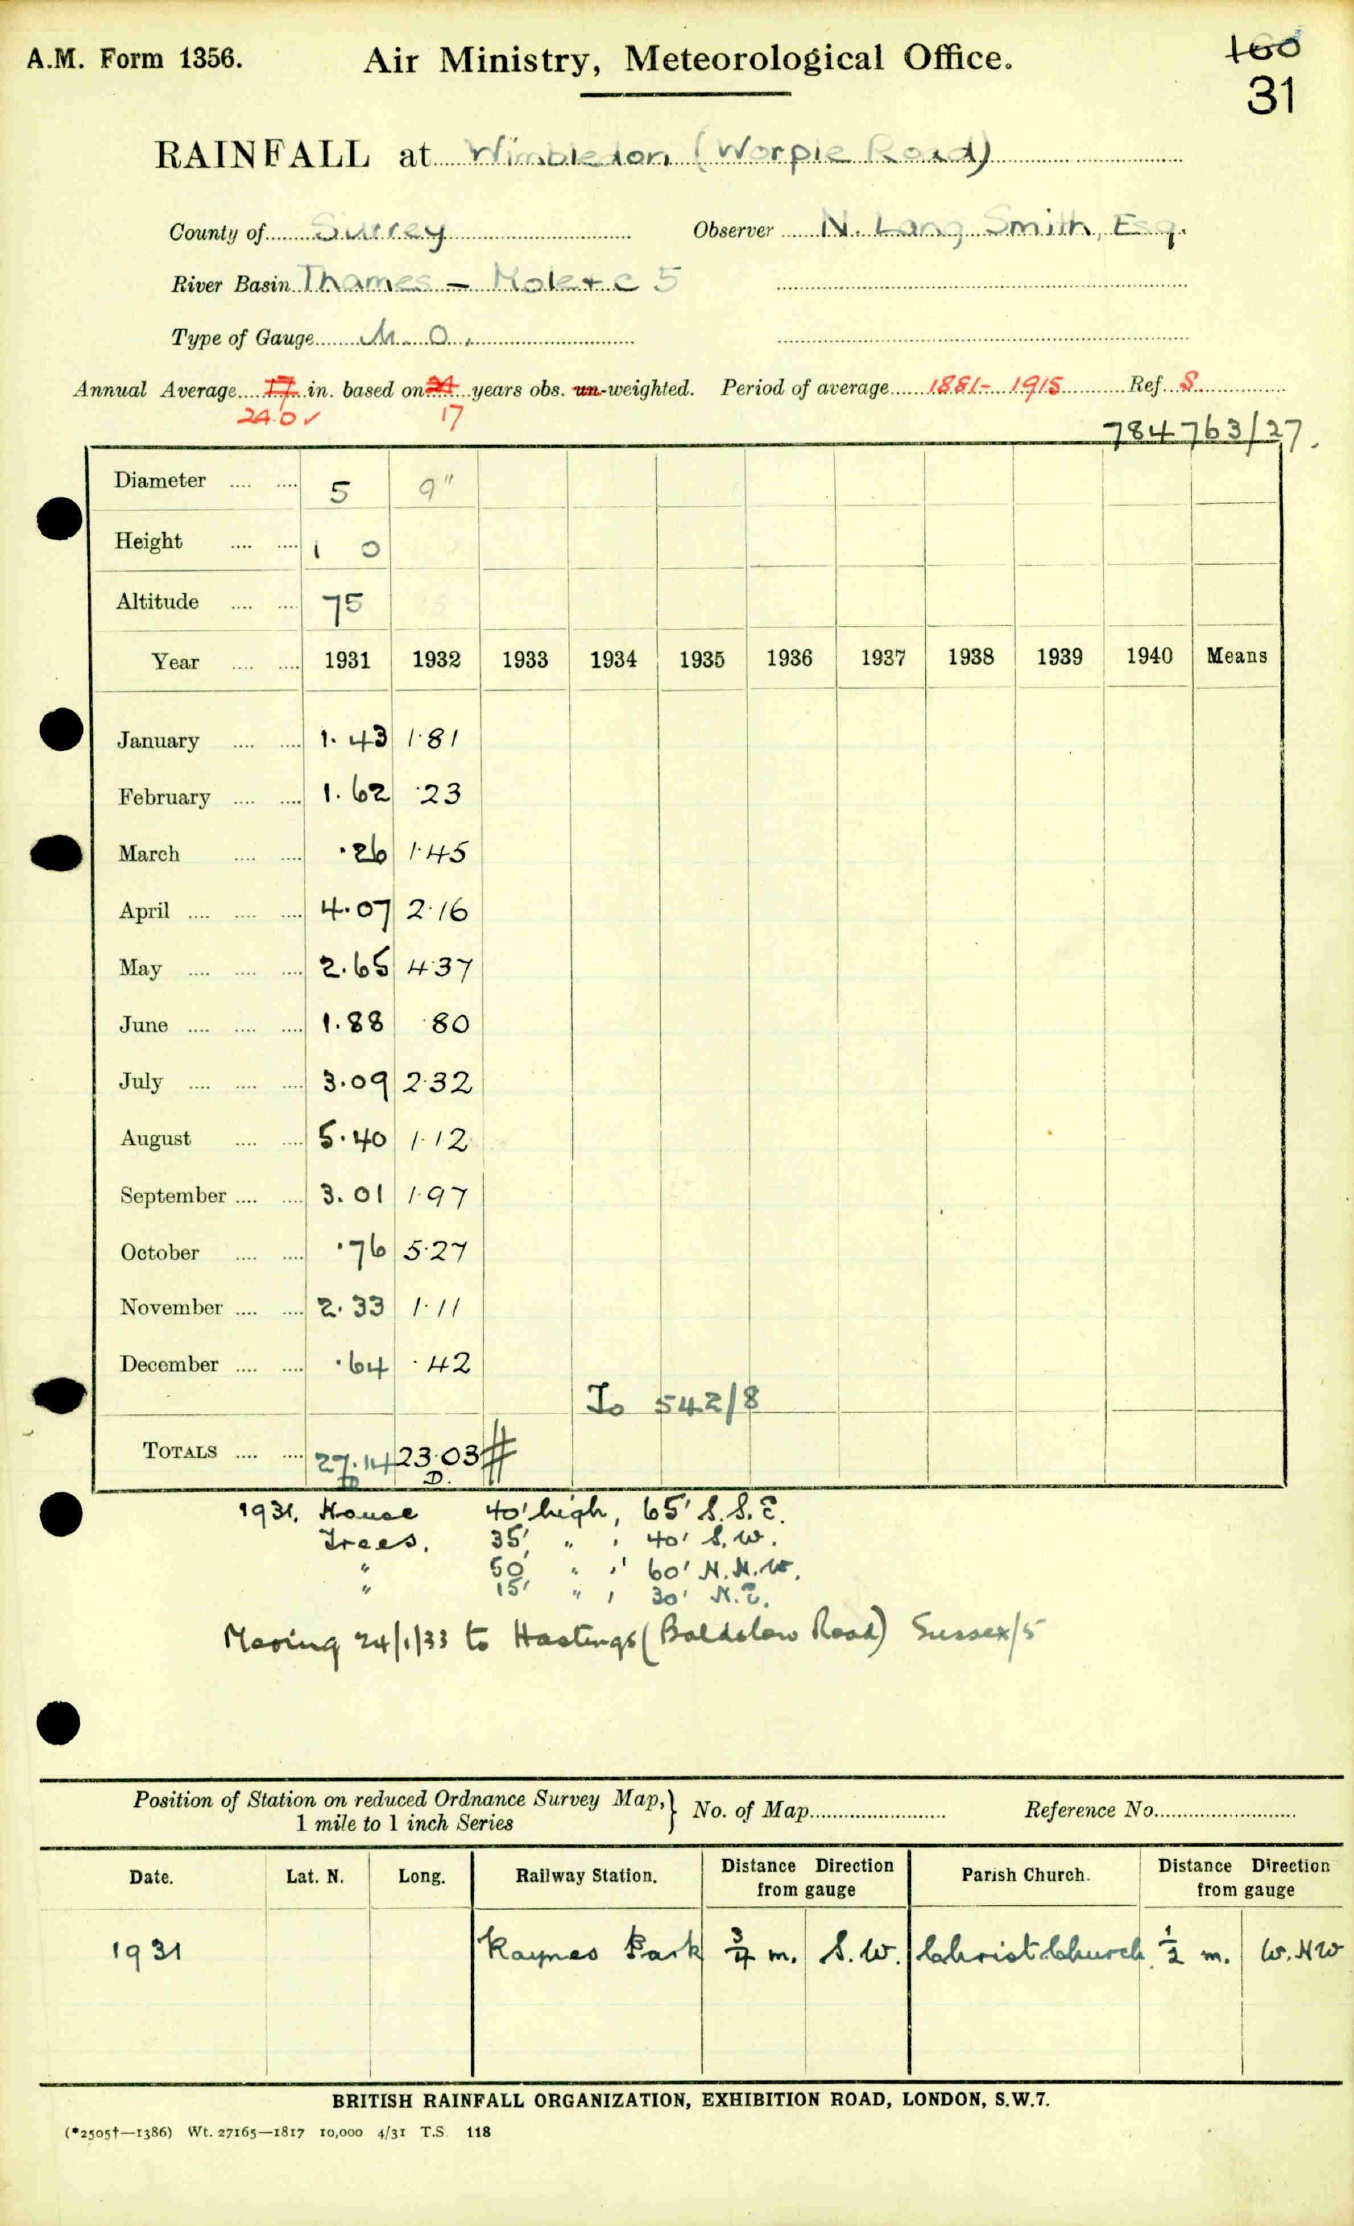 A.M. Form 1356.
Air Ministry, Meteorological Office.
100
31
RAINFALL at Wimbledon (Worple Road)
County of Surrey Observer N. Lang Smith, Esq.
River Basin Thames – Mole &c 5
Type of Gauge M.O.
Annual Average 17 in. based on 24 years obs. un-weighted. Period of average 1881-1915 Ref. S
24.0 ✓ 17
784763/27.
Diameter .... .... 5 9"
Height .... .... 1 0
Altitude .... .... 75
Year .... .... 1931 1932 1933 1934 1935 1936 1937 1938 1939 1940 Means
January .... .... 1.43 1.81
February .... .... 1.62 .23
March .... .... .26 1.45
April .... .... .... 4.07 2.16
May .... .... .... 2.65 4.37
June .... .... .... 1.88 .80
July .... .... .... 3.09 2.32
August .... .... 5.40 1.12
September .... .... 3.01 1.97
October .... .... .76 5.27
November .... .... 2.33 1.11
December .... .... .64 .42
To 542/8
TOTALS .... .... 27.14 23.03 #
D.
1931. House 40' high, 65' S.S.E.
Trees. 35' " , 40' S.W.
" 50' " , 60' N.N.W.
" 15' " , 30' N.E.
Moving 24/1/33 to Hastings (Baldslow Road) Sussex/5
Position of Station on reduced Ordnance Survey Map,} No. of Map Reference No.
1 mile to 1 inch Series
Date. Lat. N. Long. Railway Station. Distance Direction from gauge Parish Church. Distance Direction from gauge
1931 Raynes Park ¾ m. S.W. Christ Church ½ m. W.NW
BRITISH RAINFALL ORGANIZATION, EXHIBITION ROAD, LONDON, S.W.7.
(*2505†—1386) Wt. 27165—1817 10,000 4/31 T.S. 118